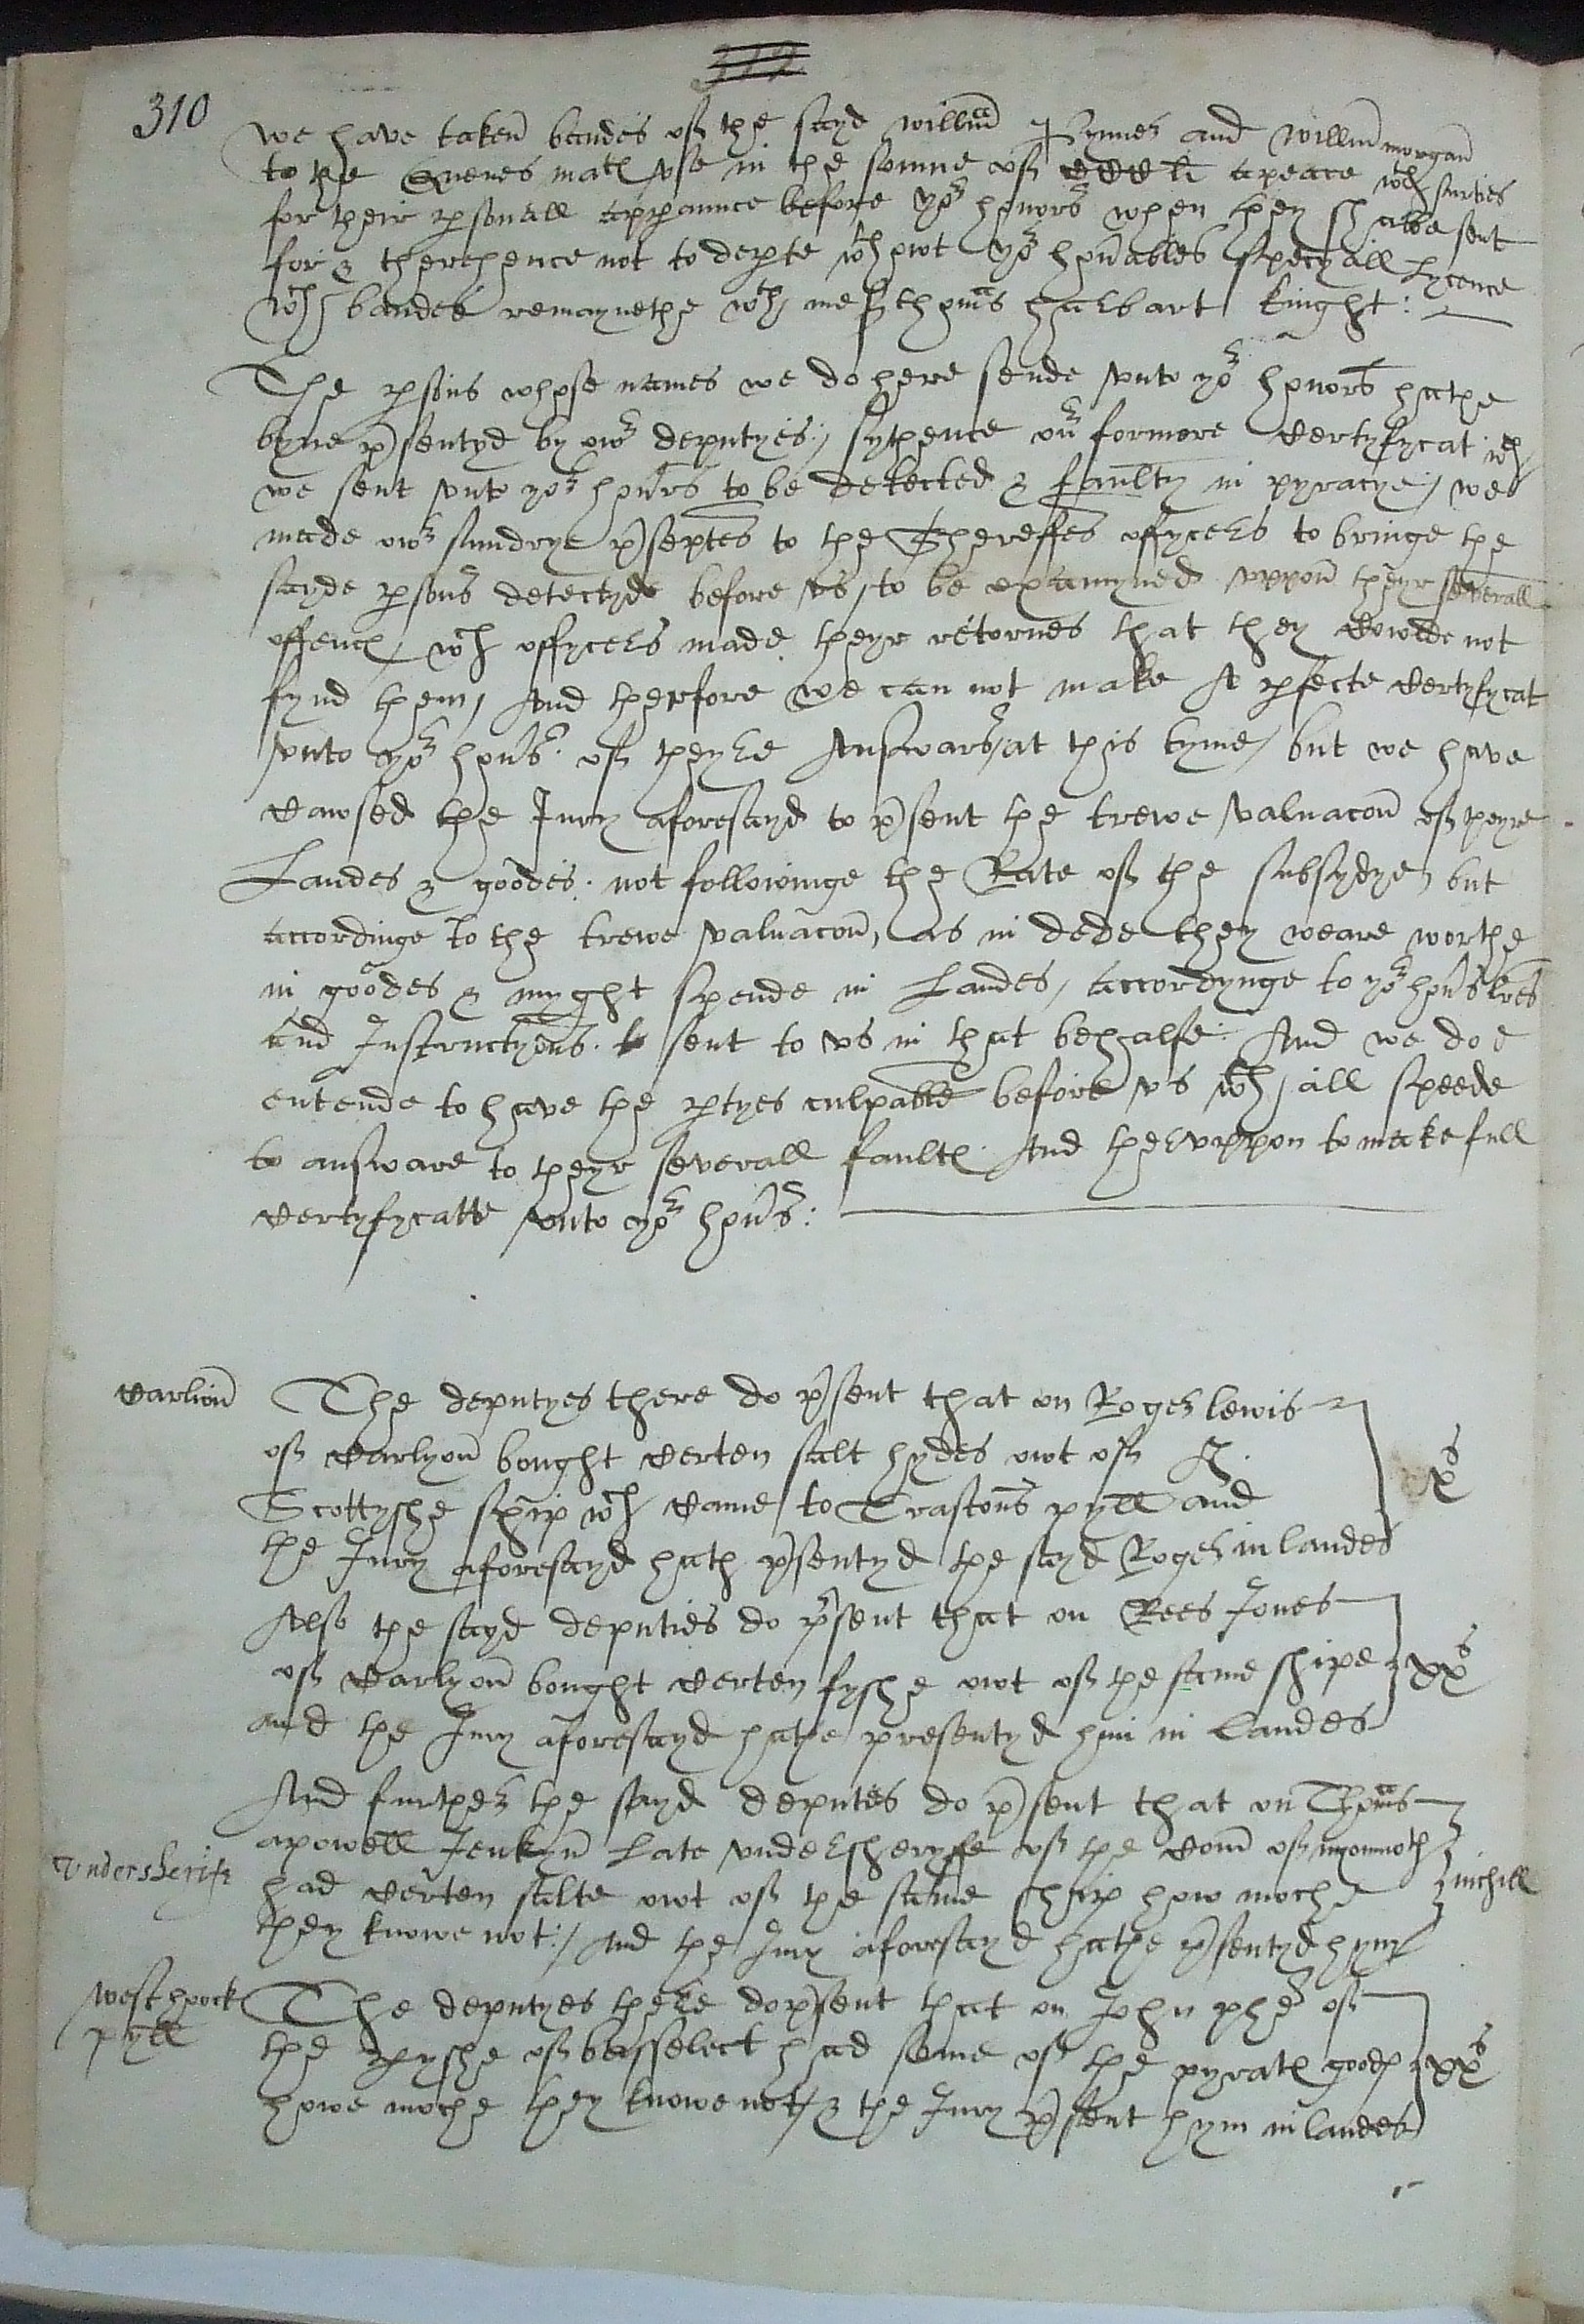 310
we have taken bandes off the sayd willm Synnes and willm morgan
to the Quenes mat vse in the somme off CCC li apeace wth surties
for their psonall apparaunce before yor honors when they shalbe sent
for & therehence not to departe wthowt yor honables specyall Lycence
wch bandes remaynethe wth me Sr thomas halbart knight :
The psons whose names we do here sende vnto yor honors hathe
byne psentyd by owr deputyes / sythence our formere Certyfycat wch
we sent vnto yor honrs to be detected & faulty in pyracye / we
made owr sundrye pseptes to the Shereffes offycers to bringe the
sayde psons detectyde before vs / to be examyned vppon theyr severall
offenc / wch offycers made theyr retornes that they Cowlde not
fynd them / And therfore we can not make A pfecte Certyfycat
vnto yor honrs off theyre Answars / at this tyme / but we have
Cawsed the Jury aforesayd to psent the trewe valuacon off theyre
Landes & goodes : not followinge the Rate off the subsydye but
accordinge to the trewe valuacon, as in dede they weare worthe
in goodes & myght spende in Landes / accordynge to yor honrs lres
and Instructyons sent to vs in that behalfe : And we doe
entende to have the ptyes culpable before vs wth all speede
to answare to theyr severall faultes And thervppon to make full
Certyfycatte vnto yor honrs :
Carlion
The deputyes there do psent that on Roger lewis
off Carlyon bought Certen salt hydes owt off A
Scottyshe ship wch Came to Trastons pyll and
the Jury aforesayd hath psentyd the sayd Roger in landes
xs
Also the sayd deputies do psent that on Rees Jones
off Carlyon bought Certen fyshe owt off the same shipe
and the Jury aforesayd hathe presentyd him in landes
xxs
And further the sayd deputes do psent that on Thomas
apowell Jenkyn Late vndersheryffe off the Com off monmoth
had Certen salte owt off the same ship how moche
they knowe not :/ And the Jury aforesayd hathe psentyd hym
nichill
Vndersherife
West hoock
pyll
The deputyes there do psent that on John phe off
the pyshe off basselect had some off the pyrates goodes
howe moche they knowe not / & the Jury psent hym in landes
xxs